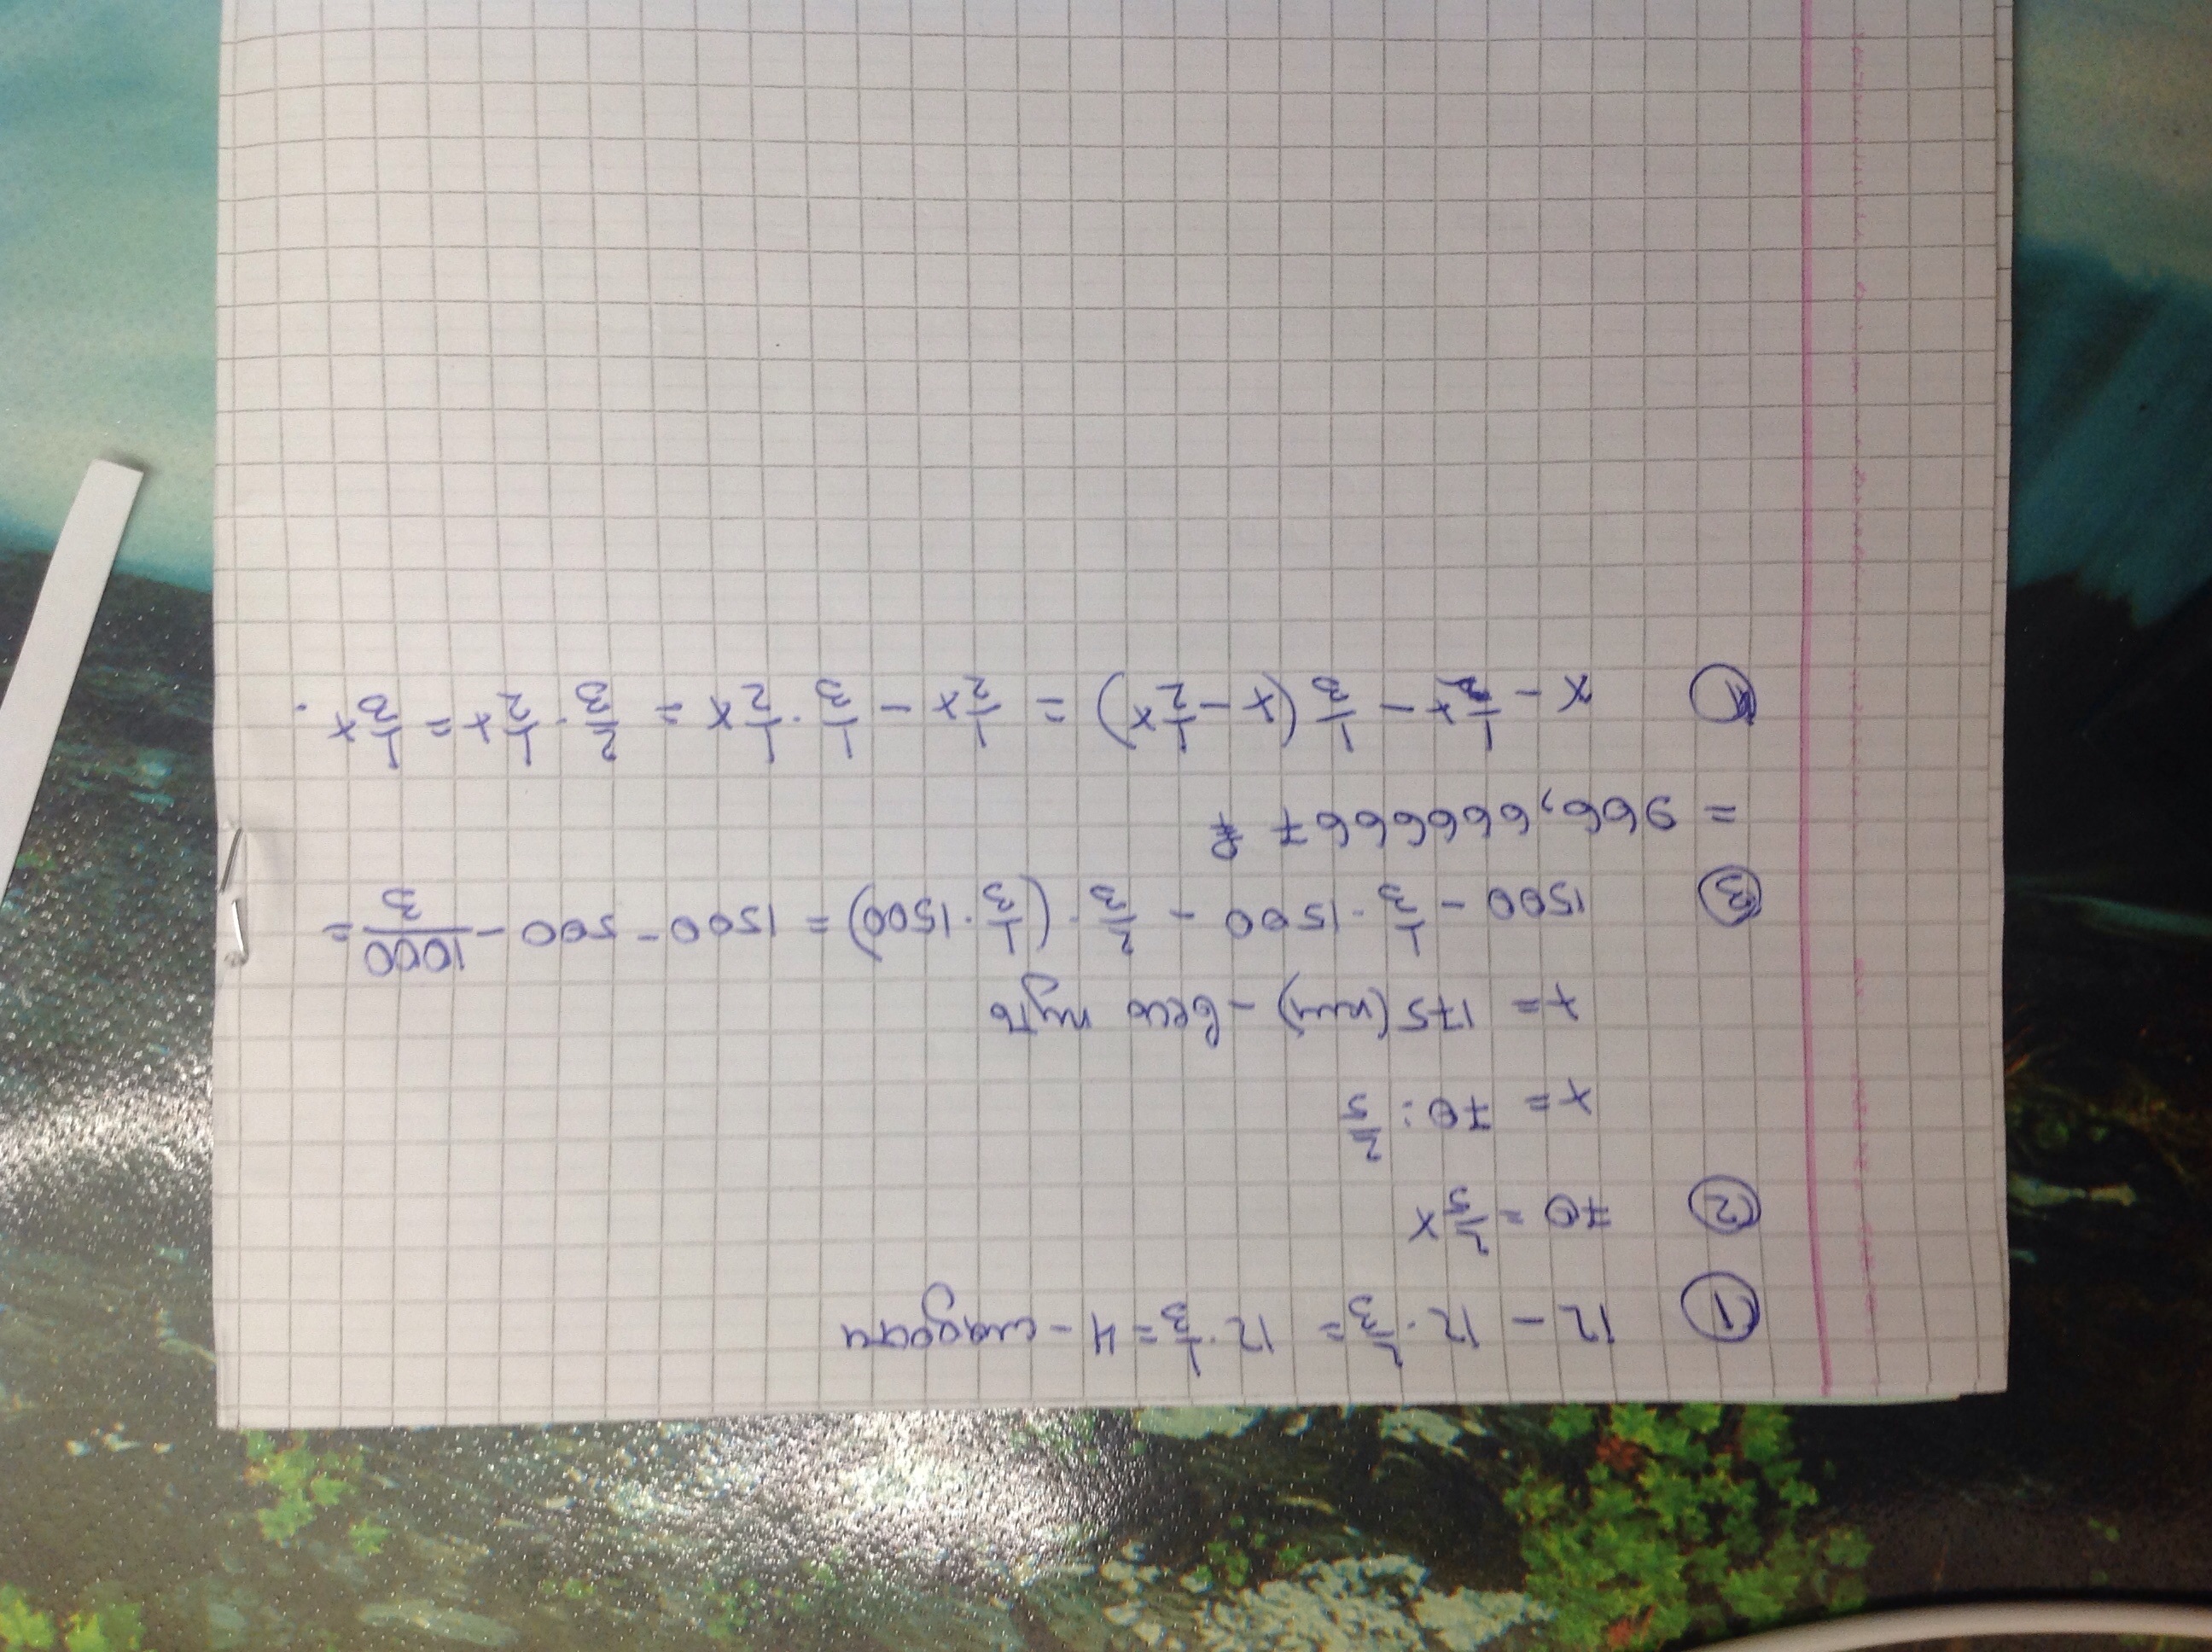 ① 12 - 12 · 2/3 = 12 · 1/3 = 4 -
② 70 = 2/5 x
x = 70 : 2/5
x = 175 (км) - весь путь
③ 1500 - 1/3 · 1500 - 2/3 · (1/3 · 1500) = 1500 - 500 - 1000/3 =
= 966,6666667
④ x - 1/2 x - 1/3 (x - 1/2 x) = 1/2 x - 1/3 · 1/2 x = 2/3 · 1/2 x = 1/3 x.